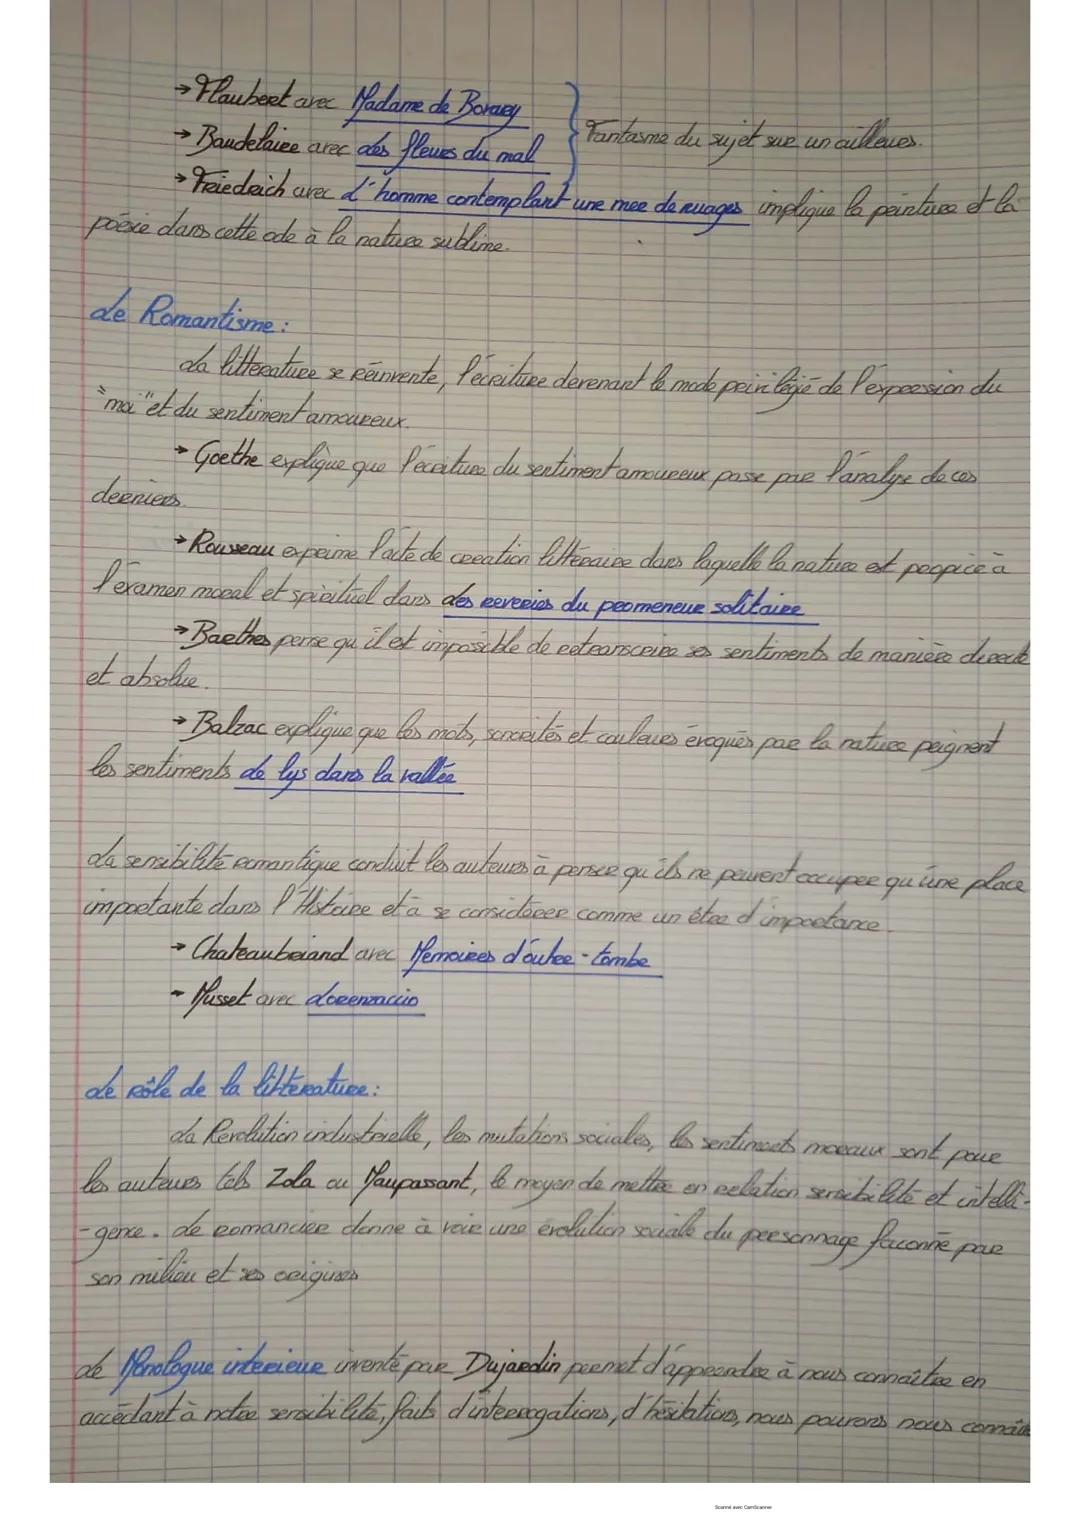 → Flaubert avec Madame de Bovary
→ Baudelaire avec Les fleurs du mal
Fantasme du sujet sur un ailleurs.
→ Friedrich avec L'homme contemplant une mer de nuages implique la peinture et la
poésie dans cette ode à la nature sublime.
Le Romantisme :
La littérature se réinvente, l'écriture devenant le mode privilégié de l'expression du
"moi" et du sentiment amoureux.
→ Goethe explique que l'écriture du sentiment amoureux passe par l'analyse de ces
derniers.
→ Rousseau exprime l'acte de création littéraire dans laquelle la nature est propice à
l'examen moral et spirituel dans Les reveries du promeneur solitaire
→ Barthes pense qu'il est impossible de retranscrire ses sentiments de manière directe
et absolue.
→ Balzac explique que les mots, sonorités et couleurs évoqués par la nature peignent
les sentiments Le lys dans la vallée
La sensibilité romantique conduit les auteurs à penser qu'ils ne peuvent occuper qu'une place
importante dans l'Histoire et à se considérer comme un être d'importance.
→ Chateaubriand avec Mémoires d'outre-tombe
→ Musset avec Lorenzaccio
Le rôle de la littérature :
La Révolution industrielle, les mutations sociales, les sentiments moraux sont pour
les auteurs tels Zola ou Maupassant, le moyen de mettre en relation sensibilité et intelli-
-gence. Le romancier donne à voir une évolution sociale du personnage façonné par
son milieu et ses origines
Le Monologue interieur inventé par Dujardin permet d'apprendre à nous connaître en
accédant à notre sensibilité, faits d'interrogations, d'hésitations, nous pouvons nous
Scanné avec CamScanner